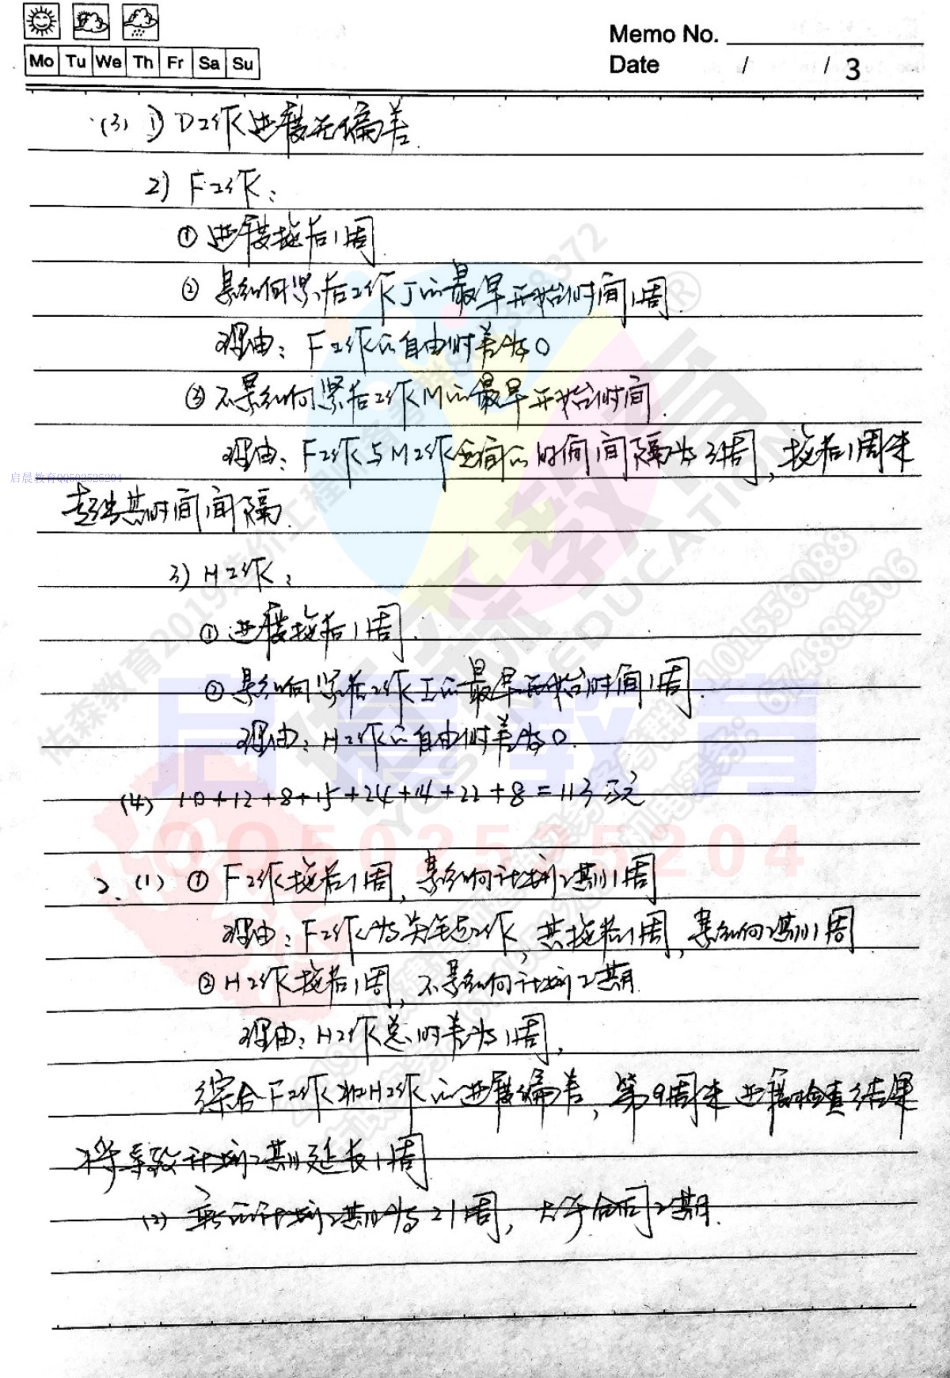 Memo No.
Mo Tu We Th Fr Sa Su
Date / / 3
(3) 1) D工作进度无偏差.
2) F工作:
① 进度拖后1周.
② 影响紧后工作J的最早开始时间1周.
理由: F工作的自由时差为0
③ 不影响紧后工作M的最早开始时间.
理由: F工作与M工作之间的时间间隔为3周, 拖后1周未
启晨教育QQ502525204
超出其时间间隔.
3) H工作:
① 进度拖后1周.
② 影响紧后工作I的最早开始时间1周.
理由: H工作的自由时差为0.
启晨教育
(4) 10+12+8+15+24+14+22+8=113万元
QQ502525204
2. (1) ① F工作拖后1周, 影响计划工期1周
理由: F工作为关键工作, 其拖后1周, 影响工期1周
② H工作拖后1周, 不影响计划工期.
理由: H工作总时差为1周,
综合F工作和H工作的进度偏差, 第9周末进度检查结果
将导致计划工期延长1周
(2) 新的计划工期为21周, 大于合同工期.
佑森教育
YOSEN EDUCATION